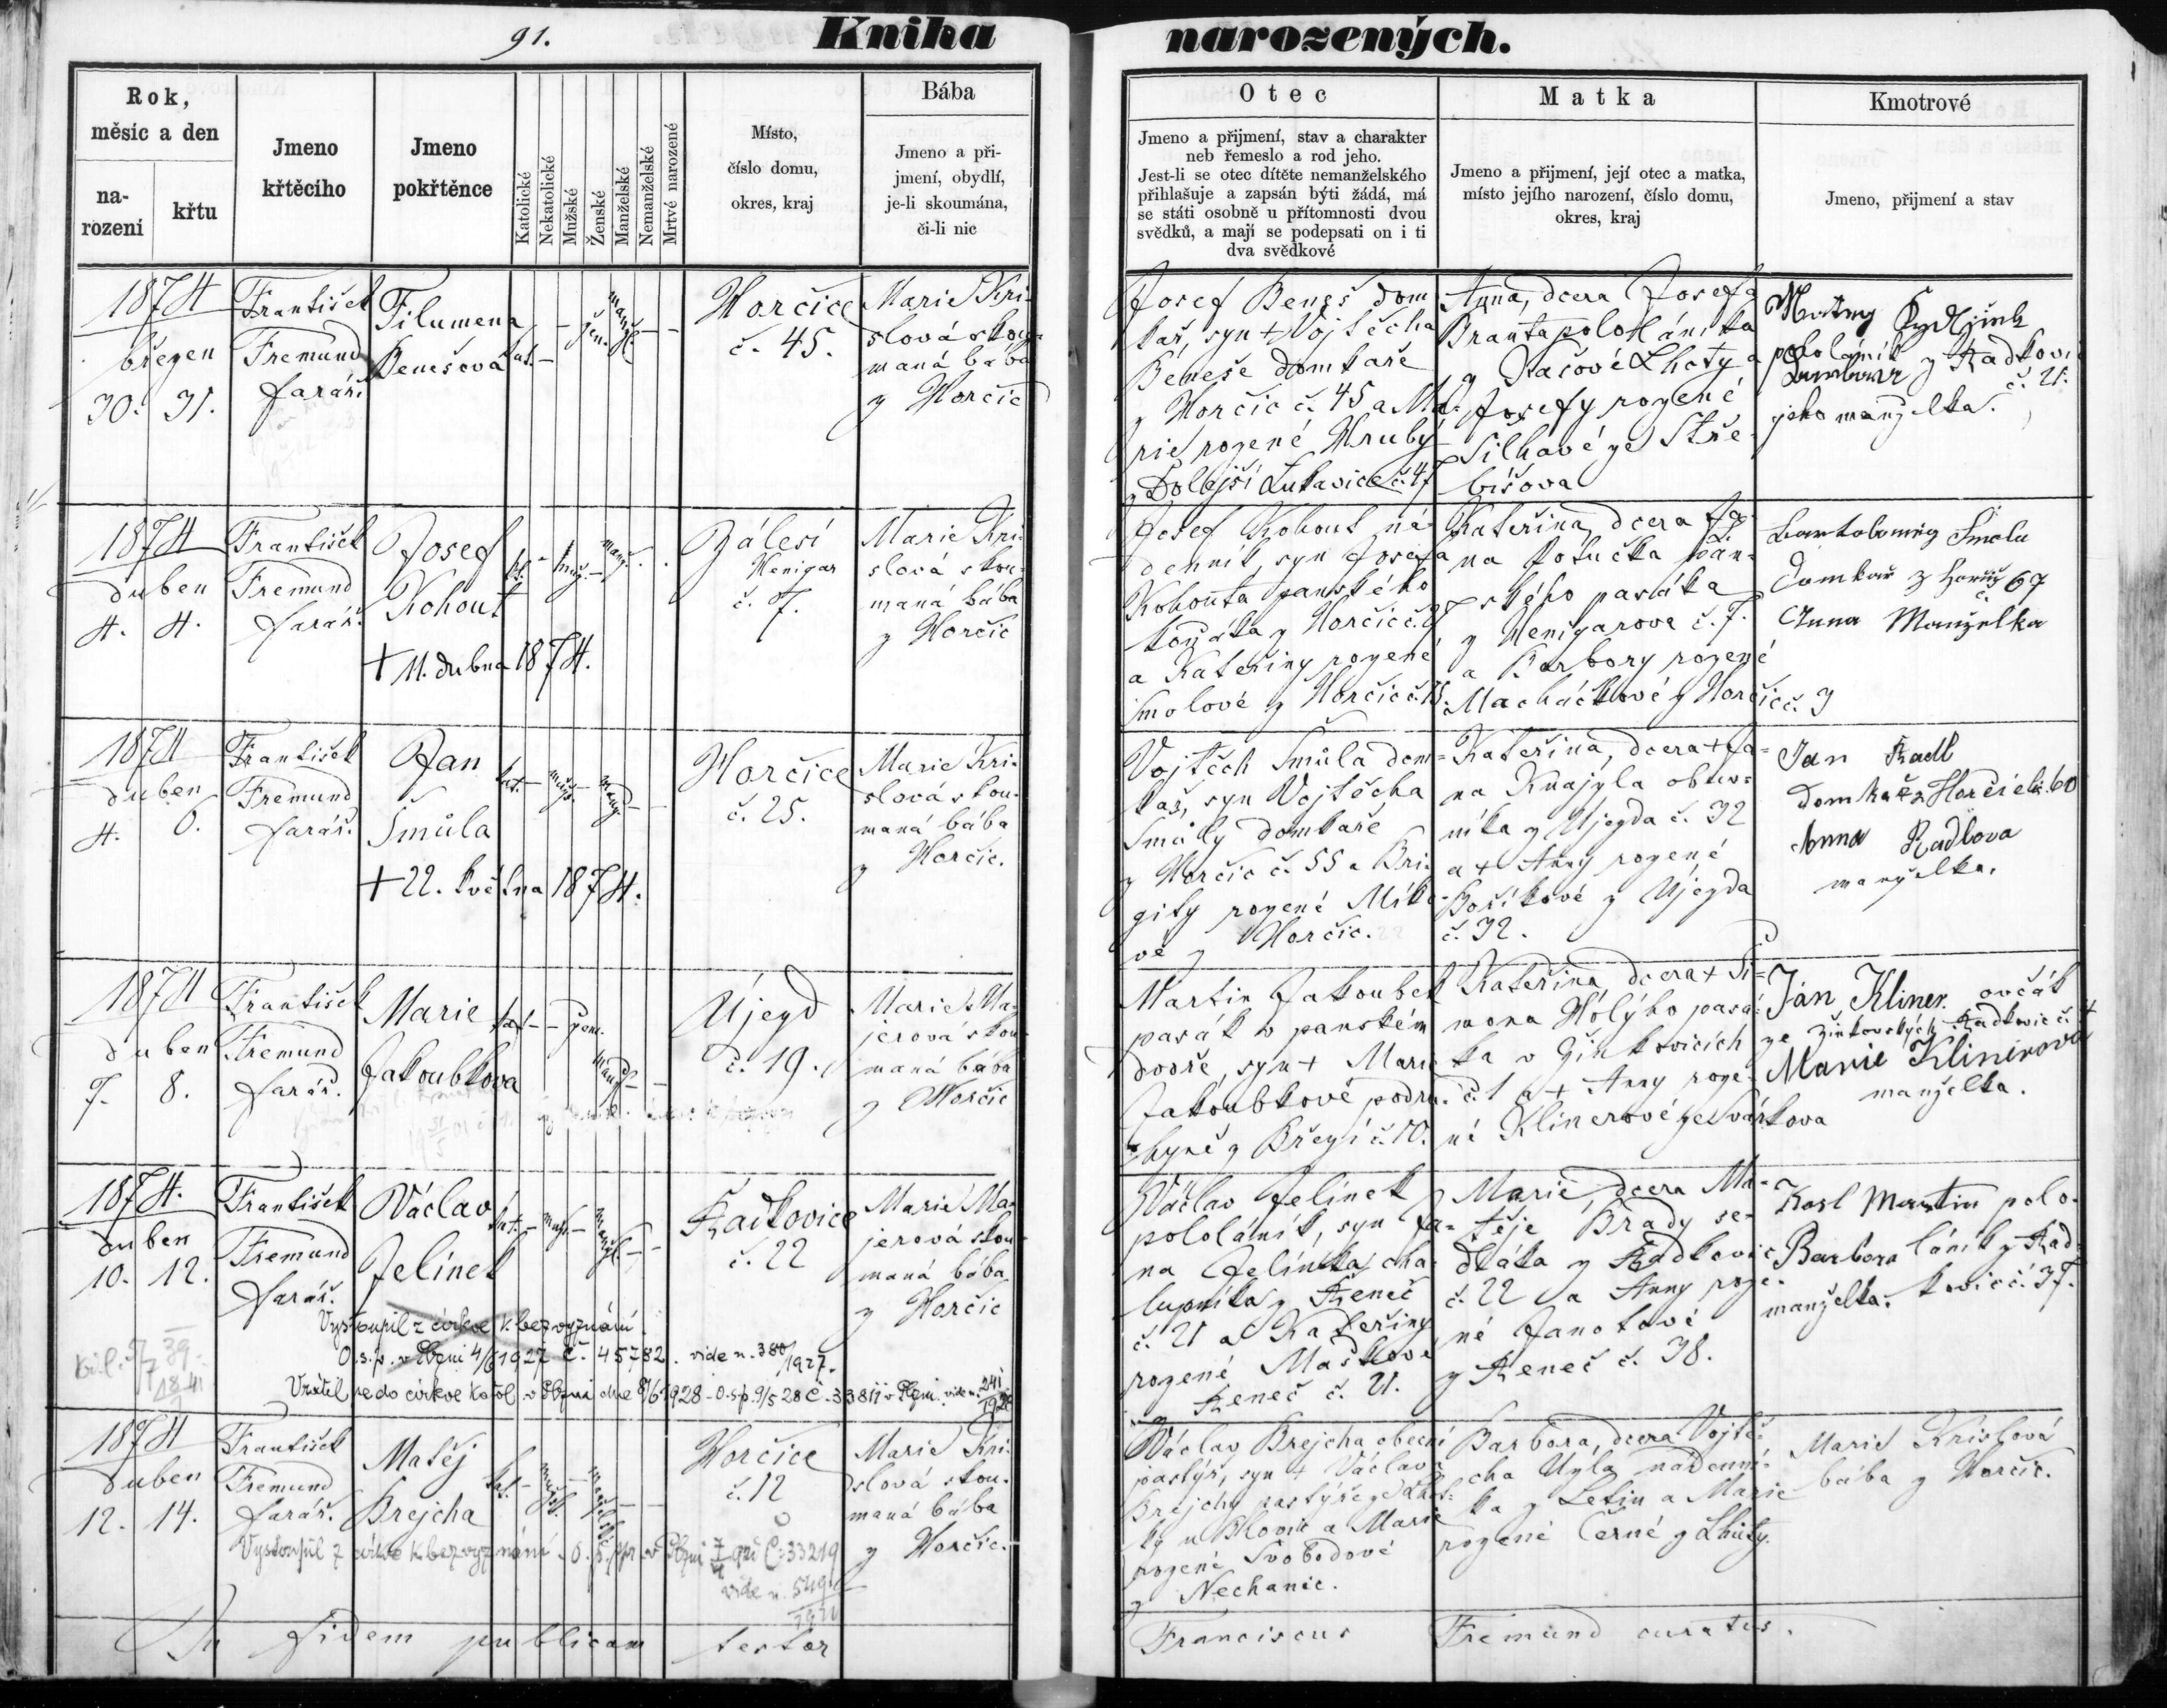 91.
Kniha narozených.
Rok,
měsíc a den
na-
rození
křtu
Jmeno
křtěcího
Jmeno
pokřtěnce
Katolické
Nekatolické
Mužské
Ženské
Manželské
Nemanželské
Mrtvé narozené
Místo,
číslo domu,
okres, kraj
Bába
Jmeno a při-
jmení, obydlí,
je-li skoumána,
či-li nic
Otec
Jmeno a přijmení, stav a charakter
neb řemeslo a rod jeho.
Jest-li se otec dítěte nemanželského
přihlašuje a zapsán býti žádá, má
se státi osobně u přítomnosti dvou
svědků, a mají se podepsati on i ti
dva svědkové
Matka
Jmeno a přijmení, její otec a matka,
místo jejího narození, číslo domu,
okres, kraj
Kmotrové
Jmeno, přijmení a stav
1874
březen
30. 31.
František
Fremund
farář.
Filumena
Benešova
kat.
žen.
manž.
Horčice
č. 45.
Marie Kri-
slová skou-
maná bába
z Horčic
Josef Beneš dom-
kař, syn + Vojtěcha
Beneše domkaře
z Horčic č. 45 a Ma-
rie rozené Hrubý
z Dolejší Lukavice č. 47
Anna, dcera Josefa
Branta pololáníka
z Kačové Lhoty a
Josefy rozené
Silhavé ze Stře-
bišova
pololáník
z Radkovic
č. 21.
jeho manželka.
1874
duben
4. 4.
František
Fremund
farář.
Josef
Kohout
+ 11. dubna 1874.
kat.
muž.
manž.
Zálesí
Henigar
č. 7.
Marie Kri-
slová skou-
maná bába
z Horčic
Josef Kohout ná-
denník, syn Josefa
Kohouta panského
z Horčic č.
a Kateřiny rozené
Smolové z Horčic č. 15.
Kateřina, dcera Ja-
na Kotučka pan-
ského pasáka
z Henigarova č. 7.
a Barbory rozené
Macháčkové z Horčic č. 3
Bartoloměj Smola
Domkař z Horčic č. 67
Anna Manželka
1874
duben
4. 6.
František
Fremund
farář.
Jan
Šmůla
+ 22. května 1874.
kat.
mužs.
manž.
Horčice
č. 25.
Marie Kri-
slová skou-
maná bába
z Horčic.
Vojtěch Smůla dom-
kař, syn Vojtěcha
Smůly domkaře
z Horčic č. 55 a Bri-
gity rozené Míko-
vé z Horčic.
Kateřina, dcera + Ja-
na Knajzla obuv-
níka z Újezda č. 32
a + Anny rozené
Bošíkové z Újezda
č. 32.
Jan Radl
Domkař z Horčic č. 60
Anna Radlova
manželka.
1874
duben
7. 8.
František
Fremund
farář.
Marie
Jakoubkova
kat.
žen.
manž.
Újezd
č. 19.
Marie Ma-
jerová skou-
maná bába
z Horčic
Martin Jakoubek
pasák v panském
dvoře, syn + Marie
Jakoubkové podru-
hyně z Březí č. 10.
Kateřina, dcera + Ši-
mona Holýho pasá-
ka v Žinkovicích
č. 1 a + Anny roze-
né Klinerové ze Svárkova
Jan Kliner ovčák
ze Žinkovských Radkovic č. 4
Marie Klinerova
manželka.
1874.
duben
10. 12.
František
Fremund
farář.
Václav
Jelínek
kat.
muž.
manžel.
Radkovice
č. 22
Marie Ma-
jerová skou-
maná bába
z Horčic
Václav Jelínek
pololáník, syn Ja-
na Jelínka cha-
lupníka z Řeneč
č. 21 a Kateřiny
rozené Maškové
z Řeneč č. 21.
Marie, dcera Ma-
těje Brady se-
dláka z Radkovic
č. 22 a Anny roze-
né Janotové
z Řeneč č. 38.
Karl Martin polo-
láník z Rad-
kovic č. 37.
Barbora
manželka.
Vystoupil z církve k bezvyznání
O.s.p. v Plzni 4/6 1927 č. 45782. vide n. 380/1927.
Vrátil se do církve katol. v Plzni dne 8/6 1928 - O.s.p. 9/5 28 č. 33811 v Plzni. vide n. 241/1928
1874
duben
12. 14.
František
Fremund
farář.
Matěj
Brejcha
kat.
mužsk.
manželské
Horčice
č. 12
Marie Kri-
slová skou-
maná bába
z Horčic.
Václav Brejcha obecní
pastýř, syn + Václava
Brejchy pastýře ze Lhot-
ky u Blovic a Marie
rozené Svobodové
z Nechanic.
Barbora, dcera Vojtě-
cha Uzla nádenní-
ka z Letin a Marie
rozené Černé z Lhoty.
Marie Krislová
bába z Horčic.
Vystoupil z církve k bezvyznání. O. s. pr. v Plzni č. 33219
vide n. 549
In fidem publicam testor Franciscus Fremund curatus.